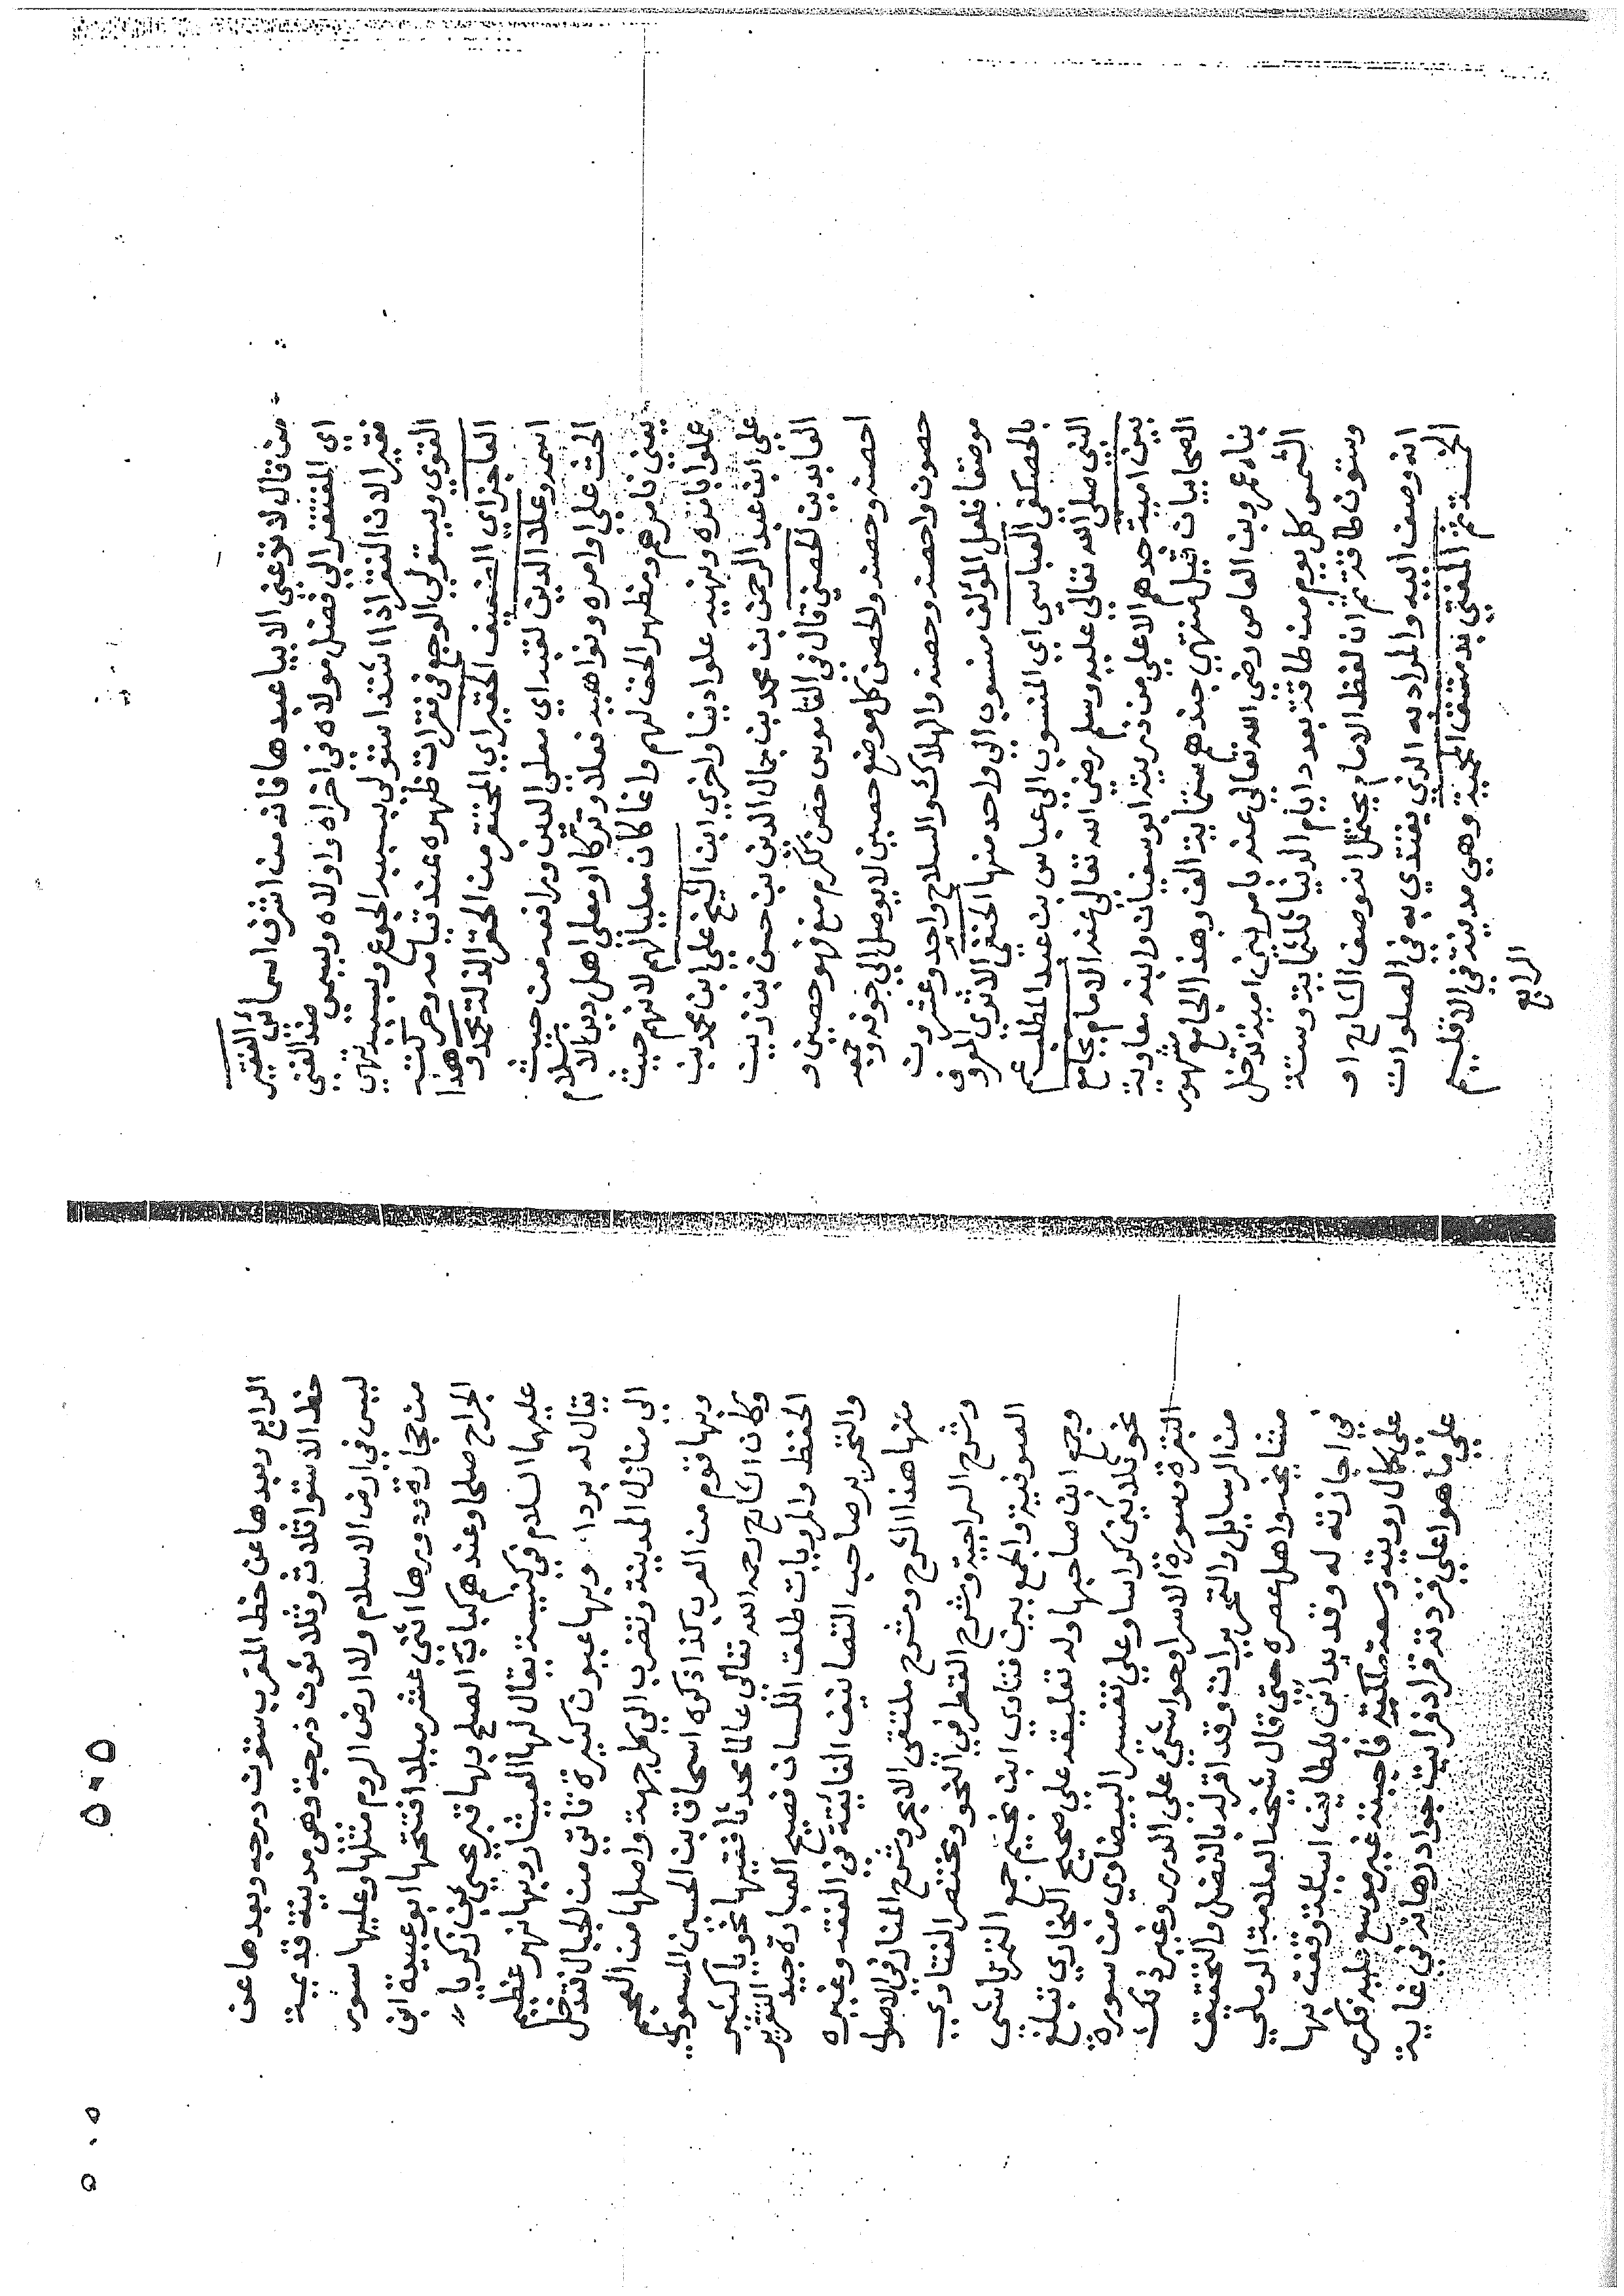 من قال لا تدعني الا بيا عبدها فانه من اشرف اسمائي الفقير
اي المفتقر الي فضل مولاه في اخراه واولاه ويسمي ضد الغني
فقير الان الفقر اذا اشتد استولي بسببه الجوع وبسببه تهي
القوي ويستولي الوجع في فقرات ظهره عند قيامه وحركته
العاجز اي الضعيف الحقير اي المحتقر من الحقر الذلة محمد وهذا
اسمه وعلا الدين لقبه اي معلي الدين ورافعه من حيث
الحث علي اوامره ونواهيه فعلا وتركا او معلي اهل دين الاسلام
يعني نامرهم ومظهر الحق لهم وانما كان معليا لهم لانهم حيث
عملوا بامره ونهيه علوا دينا واخري ابن الشيخ علي ابن محمد بن
علي ابن عبد الرحمن بن محمد بن جمال الدين بن حسن بن زين
العابدين الحصني قال في القاموس حصن ككرم منع فهو حصين و
احصنه وحصنه والحصن كل موضع حصين لا يوصل الي جوفه وجمعه
حصون واحصنه وحصنه والهلاك والسلاح واحد وعشرون
موضعا فلعل المؤلف منسوب الي واحد منها الحنفي الاثري المعروف
بالحصكفي العباسي اي المنسوب الي عباس بن عبد المطلب عم
النبي صلي الله تعالي عليه وسلم رضي الله تعالي عنه الامام بجامع
بني امية جدهم الاعلي من ذريته ابو سفيان وابنه معاوية
الصحابيان قيل منتهي جندهم ستماية الف وهذا الجامع مشهور
بناه عمرو بن العاص رضي الله تعالي عنه بامر بني امية تدخل
الشمس كل يوم من طاقة بعدد ايام الدنيا ثلثماية وستة
وستون طاقة ثم ان لفظ الامام يحتمل انه وصف الشارح او
انه وصف ابيه والمراد به الذي يقتدي به في الصلوات
الخمسة ثم المفتي بدمشق المحمية وهي مدينة في الاقليم
الرابع
الرابع بعدها عن خط المغرب ستون درجه وبعدها عن
خط الاستوا ثلاث وثلاثون درجة وهي مدينة قديمة
ليس في ارض الاسلام ولا ارض الروم مثلها وعليها سور
من حجارة ودورها اثني عشر ميلا افتتحها ابو عبيدة ابن
الجراح صلحا وعندهم كتاب الصلح وبها قبر يحيي بن زكريا
عليهما السلام في كنيسة يقال لها الميشار وبها نهر عظيم
يقال له بردا وبها عيون كثيرة تاتي من الجبال فتدخل
الي منازل المدينة وتقرب الي كل جهة واصلها من العجم
وبها قوم من العرب كذا ذكره اسحاق بن الحسين المسعودي
وكان الشارح رحمه الله تعالي عالما محدثا فقيها نحويا كثير
الحفظ والمرويات طلق اللسان فصيح العبارة جيد التقرير
والتحرير صاحب التصانيف الفائقة في الفقه وغيره
منها هذا الشرح وشرح ملتقي الابحر وشرح المنار في الاصول
وشرح السراجية وشرح القطر في النحو ومختصر الفتاوي
الصوفية والجمع بين فتاوي ابن نجيم جمع التمرتاشي
وجمع ابن صاحبها وله تعليقه علي صحيح البخاري تبلغ
نحو ثلاثين كراسا وعلي تفسير البيضاوي من سورة
البقرة وسورة الاسرا وحواشي علي الدرر وغير ذلك
من الرسايل والتحريرات وقد اقر له بالفضل والتحقيق
مشايخه واهل عصره حتي قال شيخنا العلامة الرملي
في اجازته له وقد بداني بلطايف اسئلة وقفت بها
علي كمال رويته وسعة ملكته فاجبته غير موسع عليه فكري
علي ما هو اعلي فزدته فزاد فرايت جواد رهانه في غاية